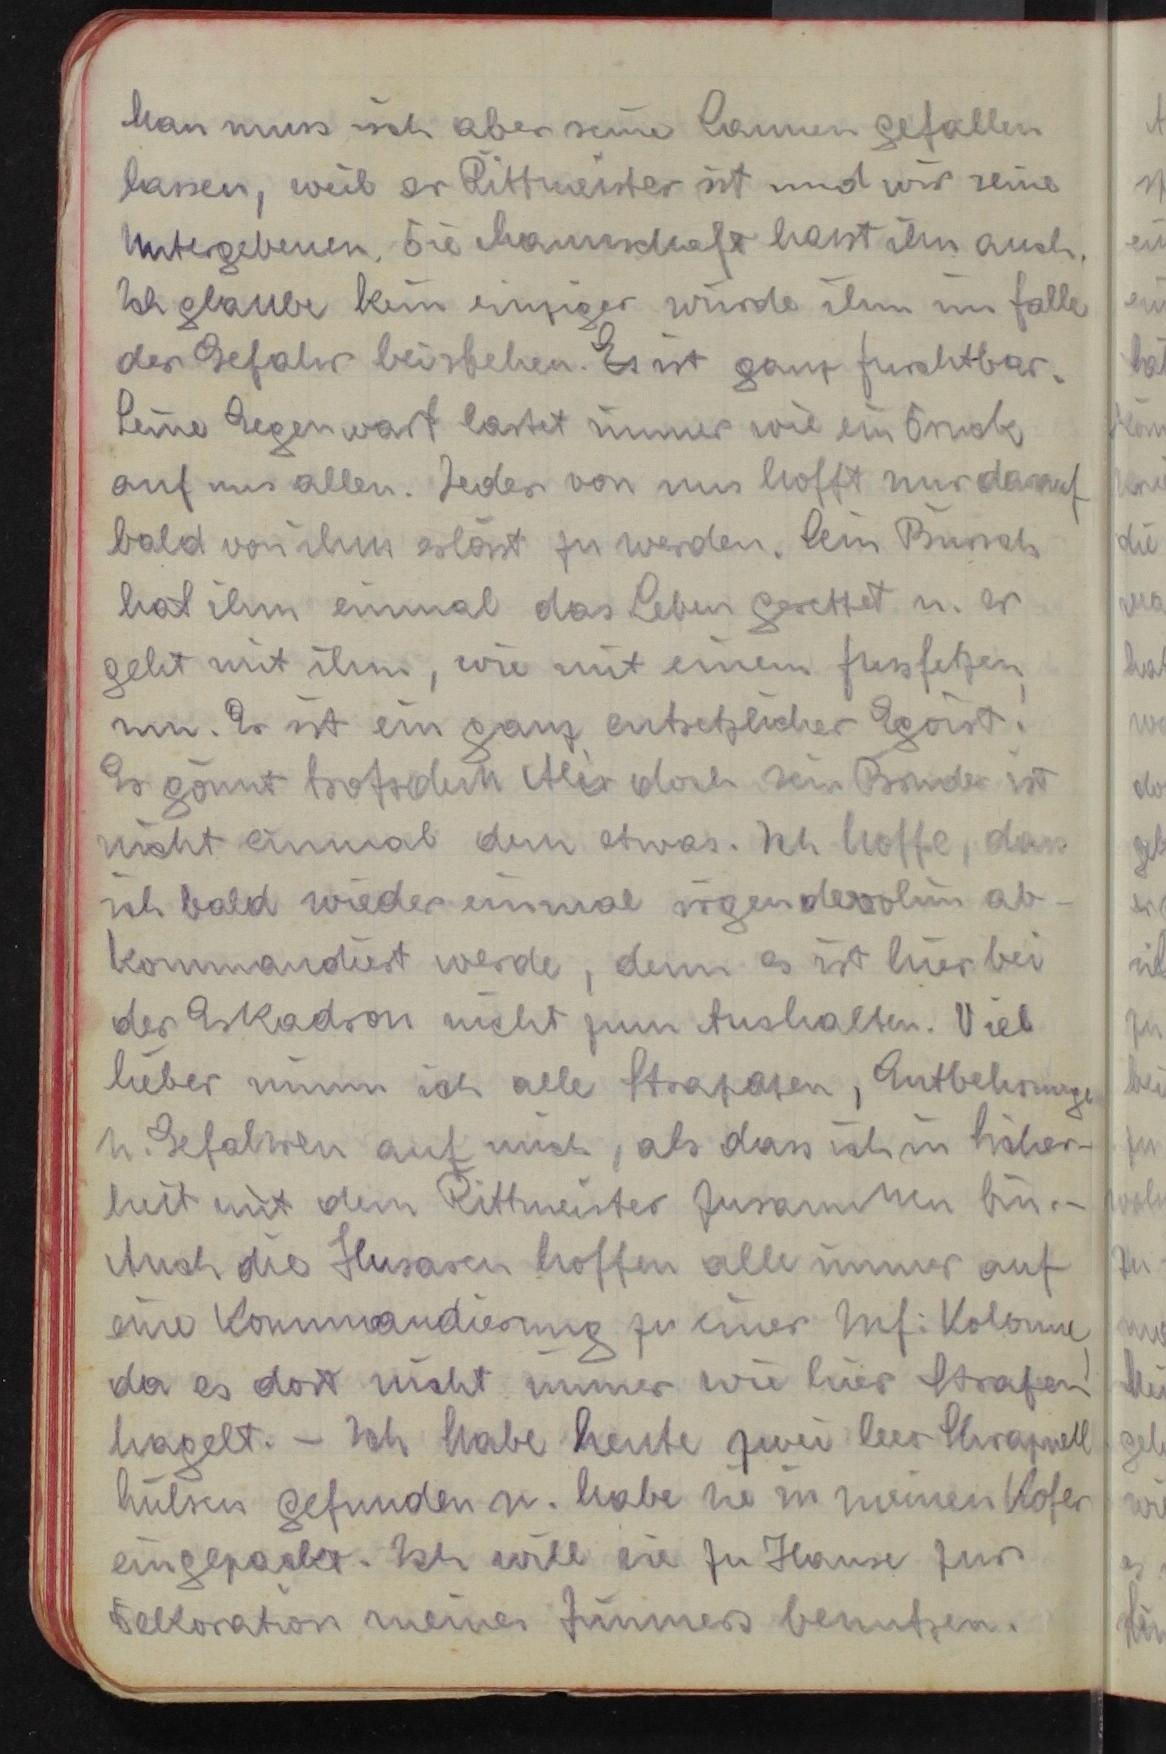 Man muss sich aber seine Launen gefallen
lassen, weil er Rittmeister ist und wir seine
Untergebenen. Die Mannschaft hasst ihn auch.
Ich glaube kein einziger würde ihm im Falle
der Gefahr beistehen. Es ist ganz furchtbar.
Seine Gegenwart lastet immer wie ein Druck
auf uns allen. Jeder von uns hofft nur darauf
bald von ihm erlöst zu werden. Sein Bursch
hat ihm einmal das Leben gerettet u. er
geht mit ihm, wie mit einem Fussfetzen
um. Er ist ein ganz entsetzlicher Egoist!
Er gönnt trotzdem Alex doch sein Bruder ist
nicht einmal dem etwas. Ich hoffe, dass
ich bald wieder einmal irgendwohin ab-
kommandiert werde, denn es ist hier bei
der Eskadron nicht zum Aushalten. Viel
lieber nimm ich alle Strapazen, Entbehrunge
u. Gefahren auf mich, als dass ich in Sicher-
heit mit dem Rittmeister zusammen bin. -
Auch die Husaren hoffen alle immer auf
eine Kommandierung zu einer Inf: Kolonne,
da es dort nicht immer wie hier Strafen
hagelt. - Ich habe heute zwei leer Shrapnell
hülsen gefunden u. habe sie in meinen Kofer
eingepackt. Ich will sie zu Hause zur
Dekoration meines Zimmers benutzen.